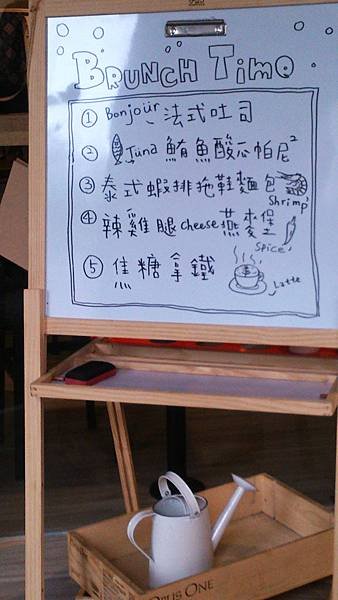 BRUNCH TIME
① Bonjour 法式吐司
② Tuna 鮪魚酸瓜帕尼²
③ 泰式蝦排拖鞋麵包
Shrimp
④ 辣雞腿cheese燕麥堡
Spice
⑤ 焦糖拿鐵
Latte
OPUS ONE